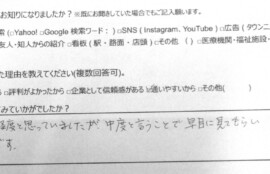 お知りになりましたか？※既にお聞きしていた場合でもご記入願います。
(□Yahoo! □Google 検索ワード： ) □SNS ( Instagram、YouTube ) □広告 ( タウンニ
友人・知人からの紹介 □看板 ( 駅・路面・店頭 ) □その他 ( ) □医療機関・福祉施設・
た理由を教えてください(複数回答可)。
□評判がよかったから □企業として信頼感がある □通いやすいから □その他( )
みていかがでしたか？
度と思っていましたが 中度と言うことで 早目に見てもらい
です。